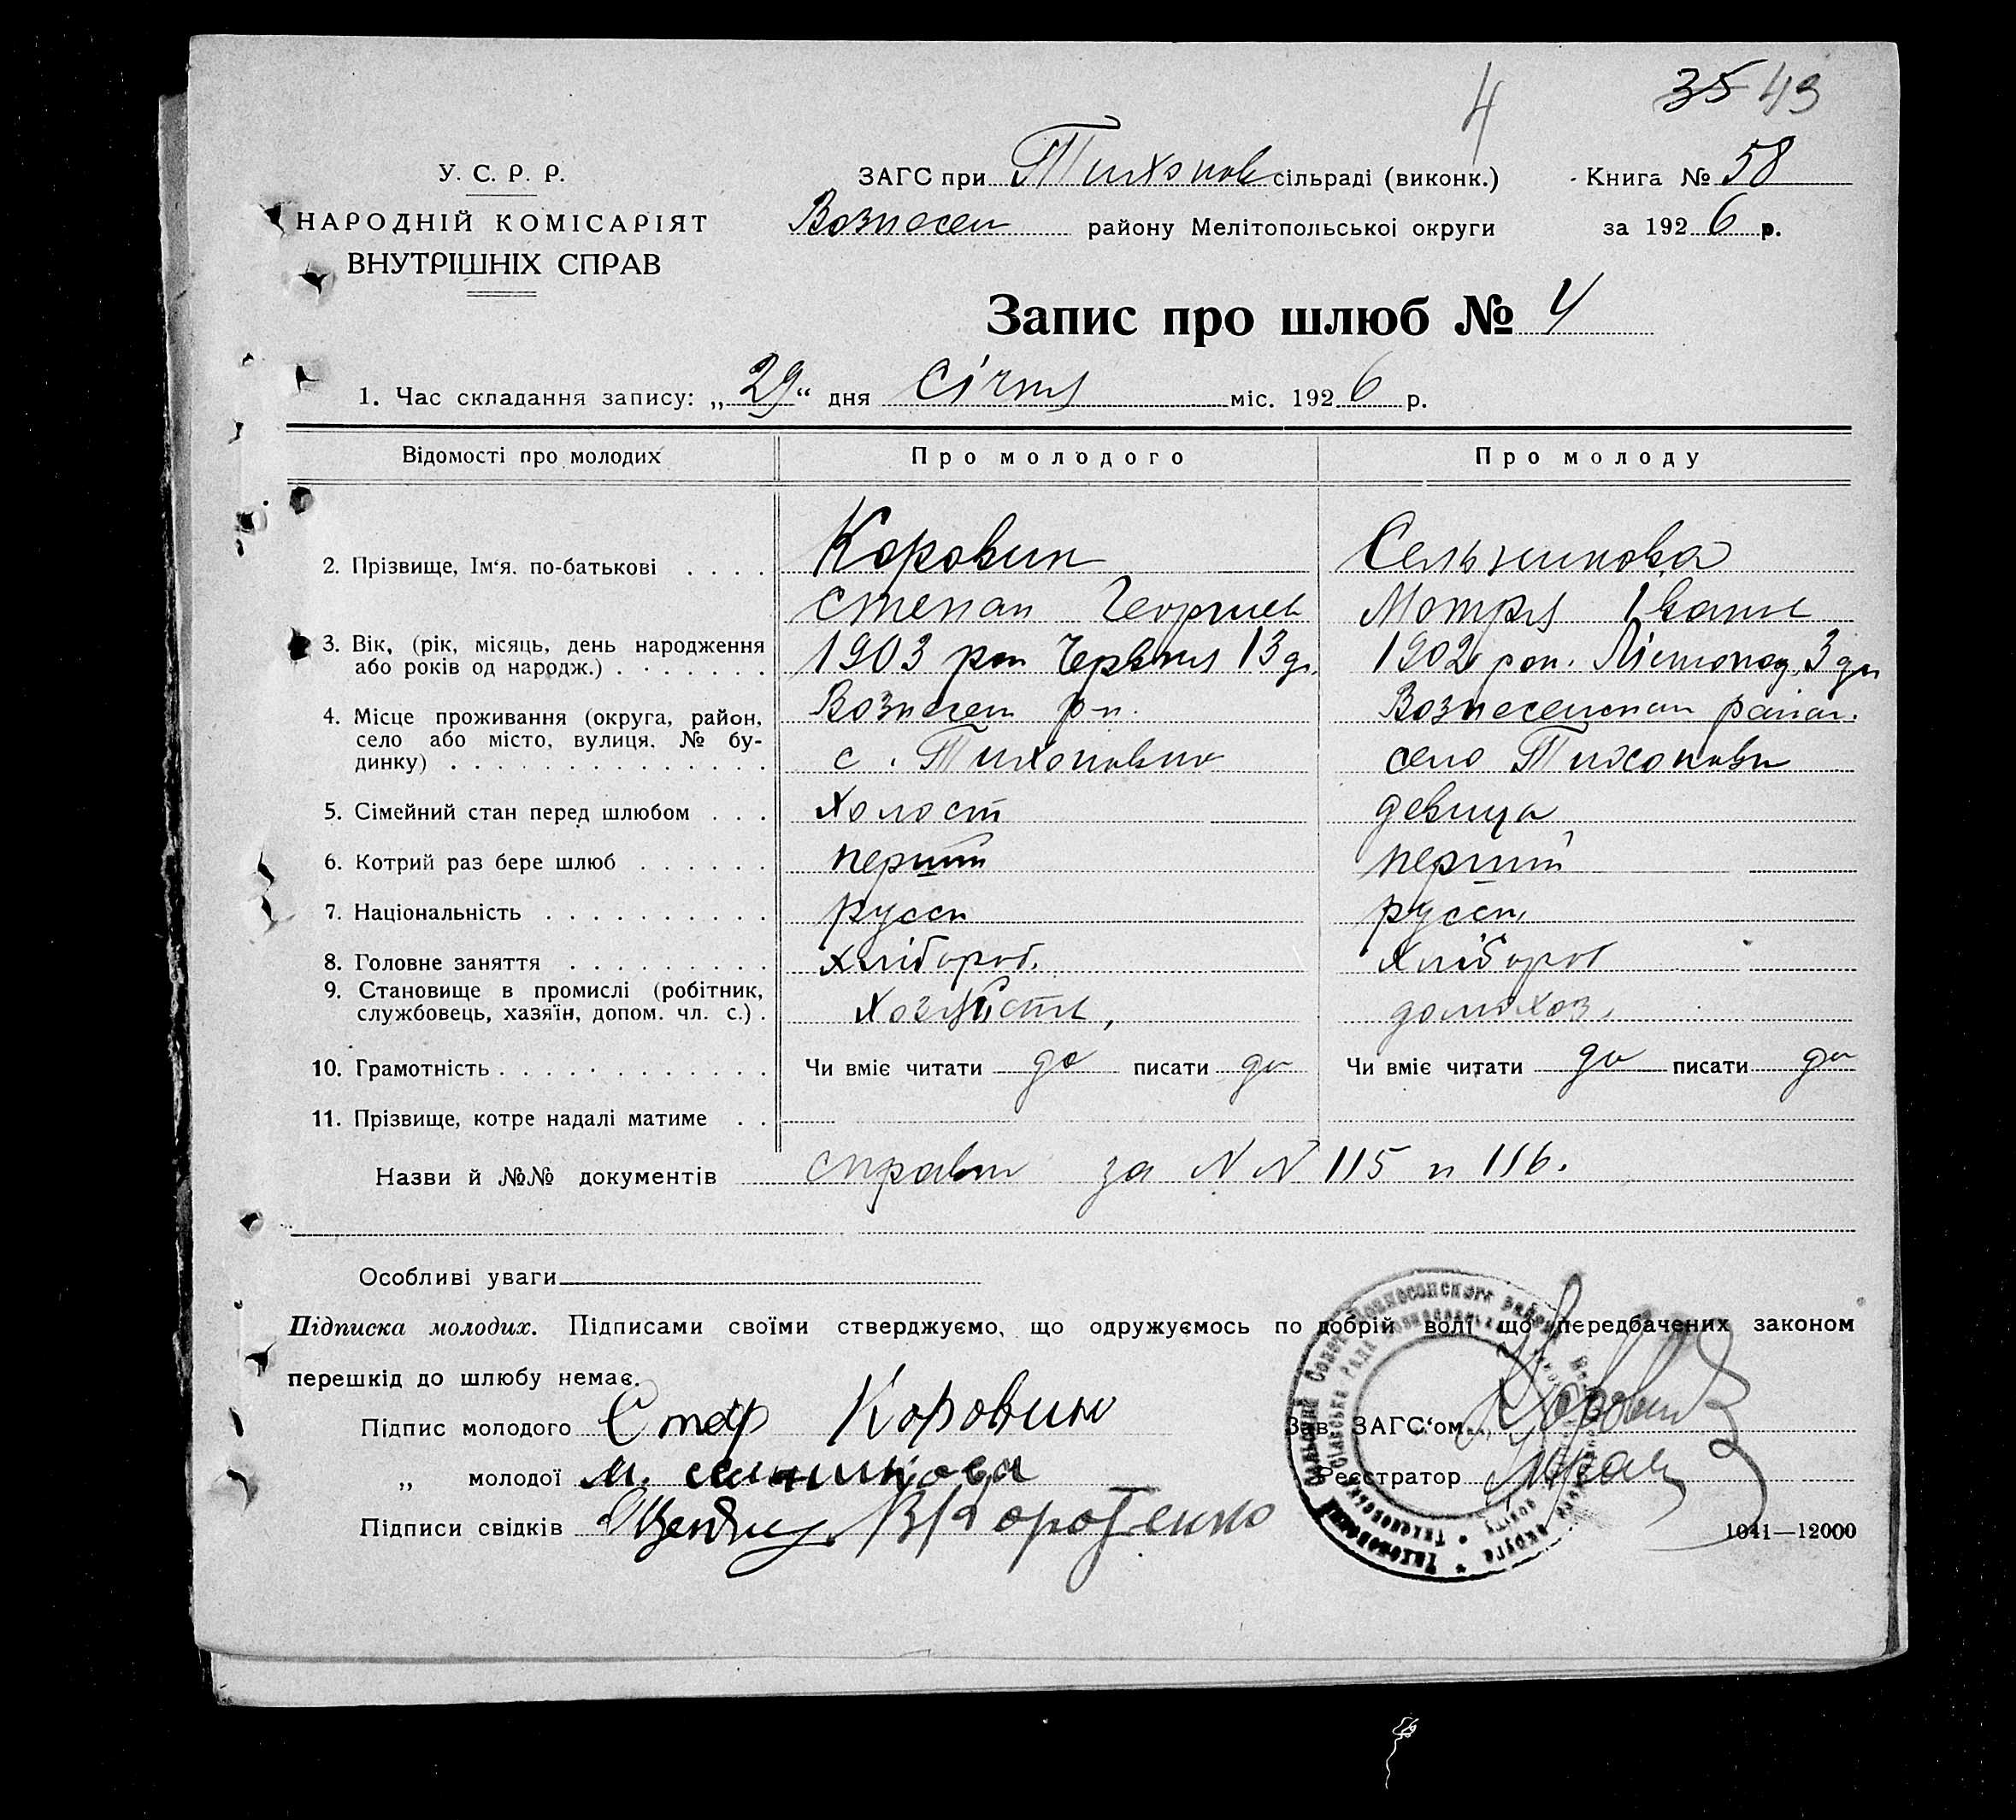 4
35 43
У. С. Р. Р.
НАРОДНІЙ КОМІСАРІЯТ
ВНУТРІШНІХ СПРАВ
ЗАГС при Тихонов сільраді (виконк.)
Книга № 58
Вознесен району Мелітопольської округи
за 1926 р.
Запис про шлюб № 4
1. Час складання запису: „29“ дня Січня міс. 1926 р.
Відомості про молодих Про молодого Про молоду
2. Прізвище, Ім'я. по-батькові Коровин Сельникова
Степан Георгиев Мотря Іванов
3. Вік, (рік, місяць, день народження
або років од народж.) 1903 рок Червня 13 д. 1902 рок. Лістопад 3 дн
4. Місце проживання (округа, район, Вознесен р-н. Вознесенскаи район.
село або місто, вулиця, № бу-
динку) с. Тихоновка село Тихоновки
5. Сімейний стан перед шлюбом холост девица
6. Котрий раз бере шлюб перший перший
7. Національність русск русск
8. Головне заняття хлібороб. хлібороб
9. Становище в промислі (робітник,
службовець, хазяїн, допом. чл. с.). домохоз.
10. Грамотність Чи вміє читати да писати да Чи вміє читати да писати да
11. Прізвище, котре надалі матиме
Назви й №№ документів справки за N N 115 и 116.
Особливі уваги
Підписка молодих. Підписами своїми стверджуємо, що одружуємось по добрій волі що передбачених законом
перешкід до шлюбу немає.
Підпис молодого Стеф Коровин
„ молодої М. селникова
Підписи свідків В Коротенко
Зав. ЗАГС'ом Коровин
Реєстратор
1041—12000